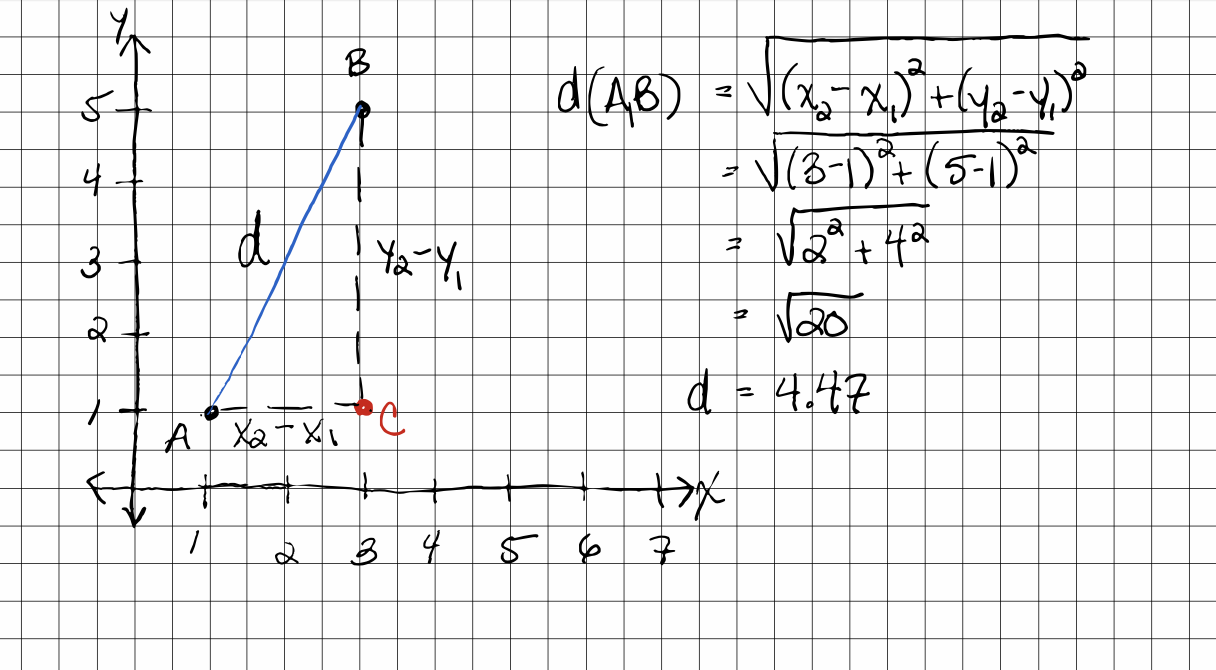 y
B
5
4
3
2
1
d
y₂-y₁
A
x₂-x₁
C
x
1 2 3 4 5 6 7
d(A,B) = √((x₂-x₁)²+(y₂-y₁)²)
= √((3-1)²+(5-1)²)
= √(2²+4²)
= √20
d = 4.47